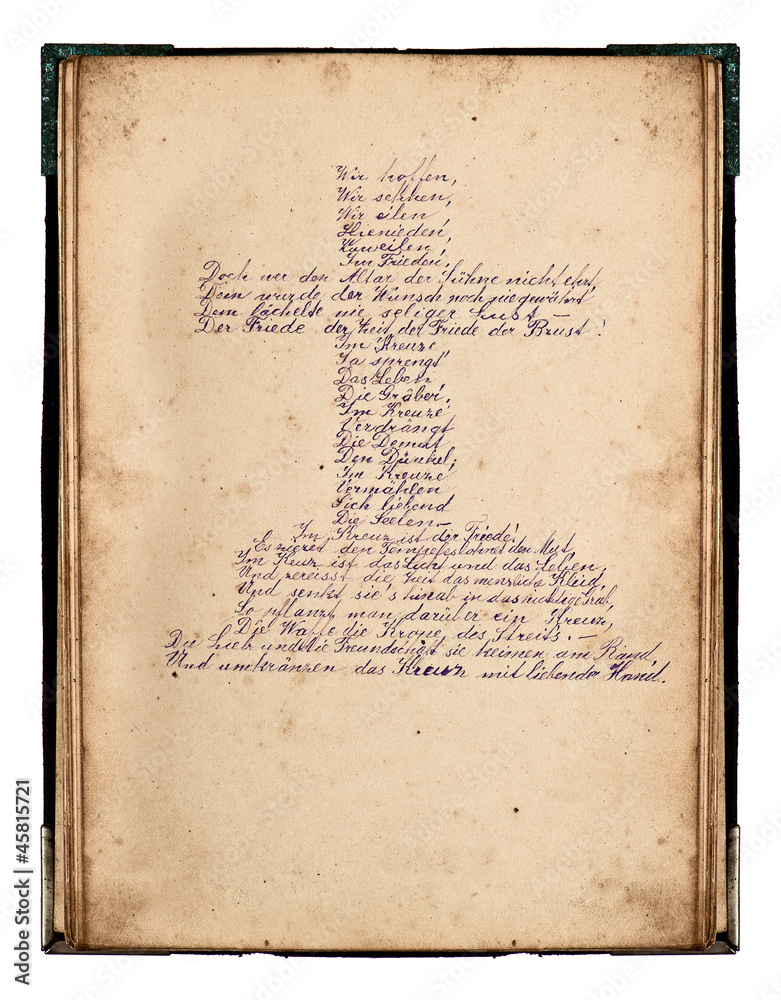 Wir hoffen,
Wir sehnen,
Wir eilen,
Hienieden,
Zuweilen,
Im Frieden;
Doch wer den Altar der Sühne nicht ehrt,
Dem wurde der Wunsch noch nie gewährt
Dem lächelte nie seliger Lust –
Der Friede der Zeit, der Friede der Brust!
Im Kreuze
Ja sprengt
Das Leben
Die Gräber,
Im Kreuze
Verdrängt
Die Demut
Den Dünkel;
Im Kreuze
Vermählen
Sich liebend
Die Seelen.–
Im Kreuz ist der Friede!
Es zieret den Tempel es lohnet den Mut,
Im Kreuz ist das Licht und das Leben,
Und zereisst die Zeit das menzliche Kleid,
Und senkt sie's hinab in das Grab,
So pflanzt man darüber ein Kreuz,
Die Waffe die Krone des Streits.–
Die Lieb und die Freundschaft sie keimen am Rand,
Und umkränzen das Kreuz mit liebender Hand.
Adobe Stock | #45815721